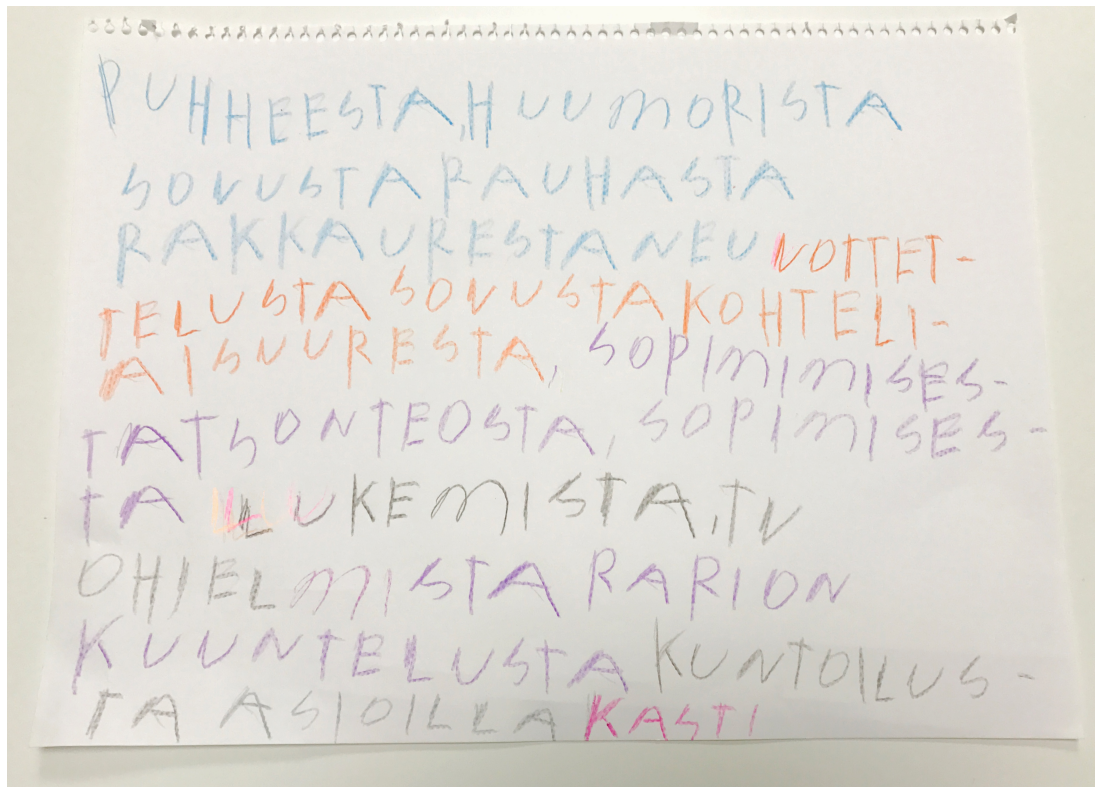 PUHHEESTA, HUUMORISTA
SOVUSTA RAUHASTA
RAKKAURESTA NEUVOTTET-
TELUSTA SOVUSTA KOHTELI-
AISUURESTA, SOPIMIMISES-
TA TSONTEOSTA, SOPIMISES-
TA LUKEMISTA, TV
OHJELMISTA RARION
KUUNTELUSTA KUNTOILUS-
TA ASIOILLA KASTI